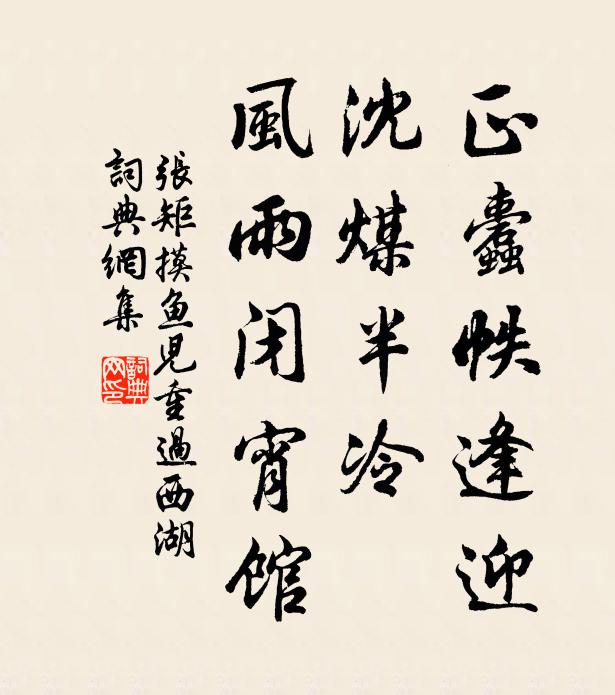 正蠹帙逢迎
沈煤半冷
風雨闭宵館
張矩摸鱼兒重過西湖
詞典網集
詞典
网印